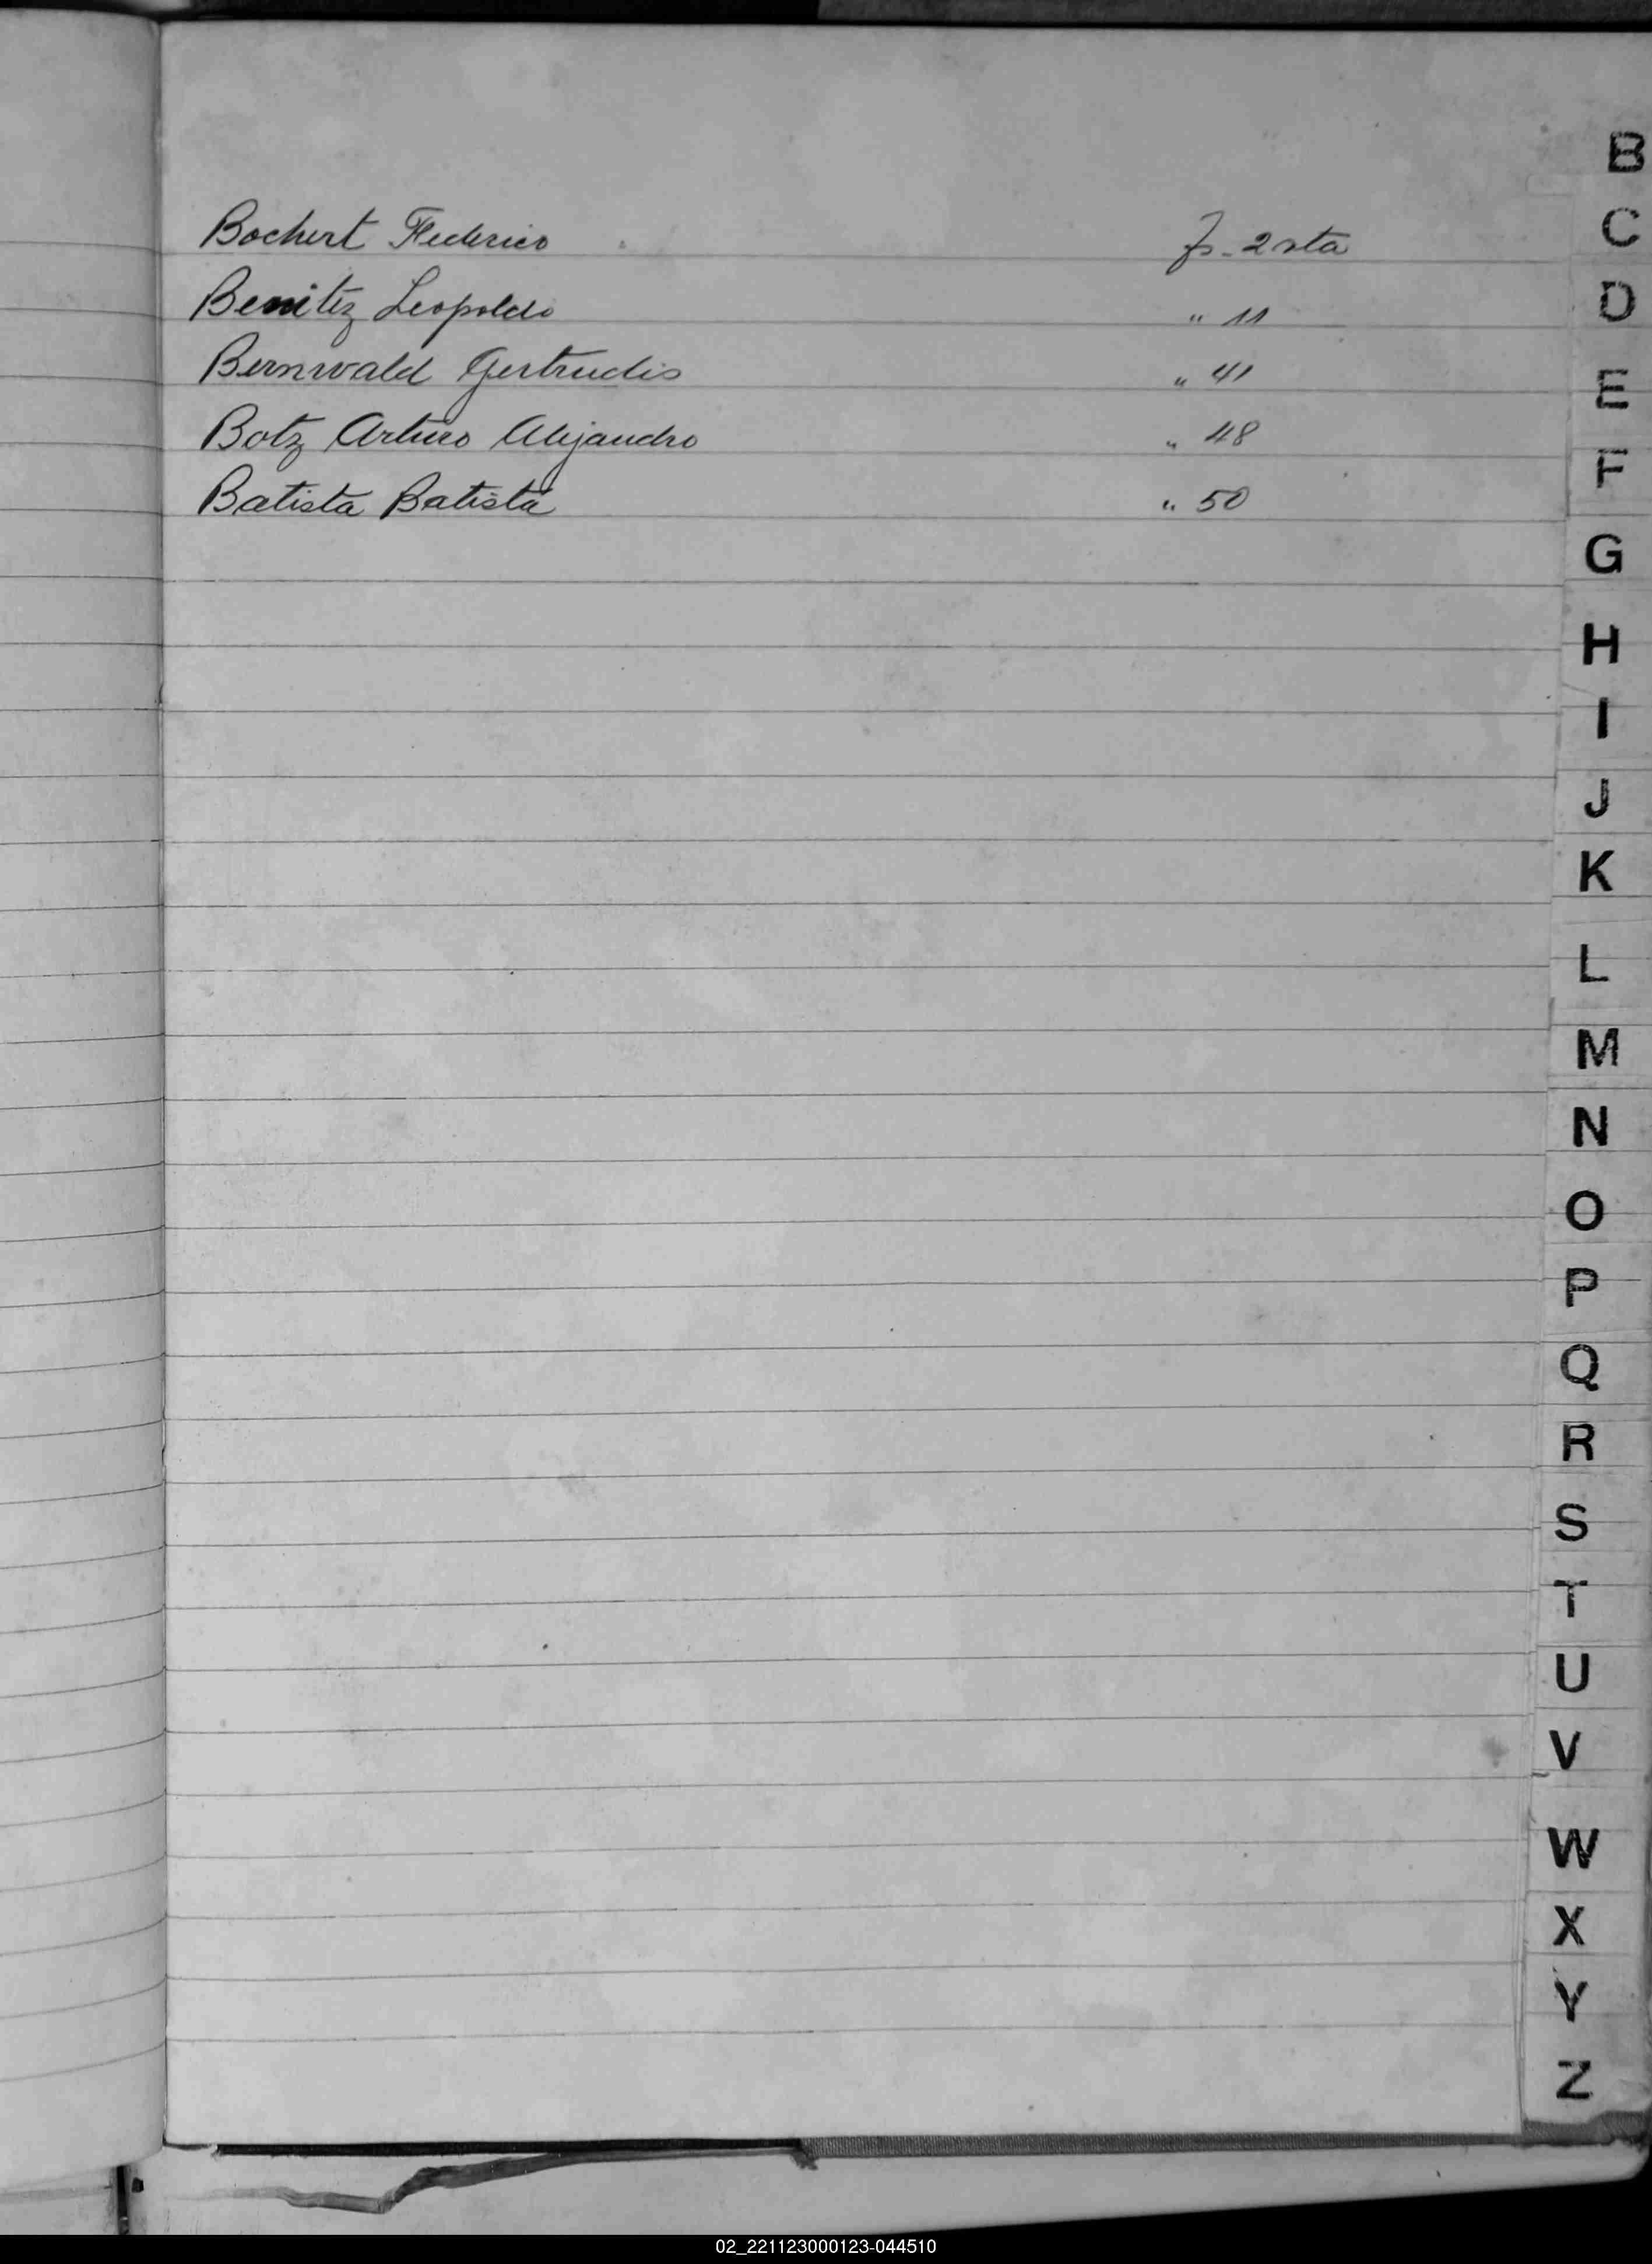 Bochert Federico fs. 2 vta
Benitez Leopoldo " 11
Bernwald Gertrudis " 41
Botz Arturo Alejandro " 48
Batista Batista " 50
B
C
D
E
F
G
H
I
J
K
L
M
N
O
P
Q
R
S
T
U
V
W
X
Y
Z
02_221123000123-044510